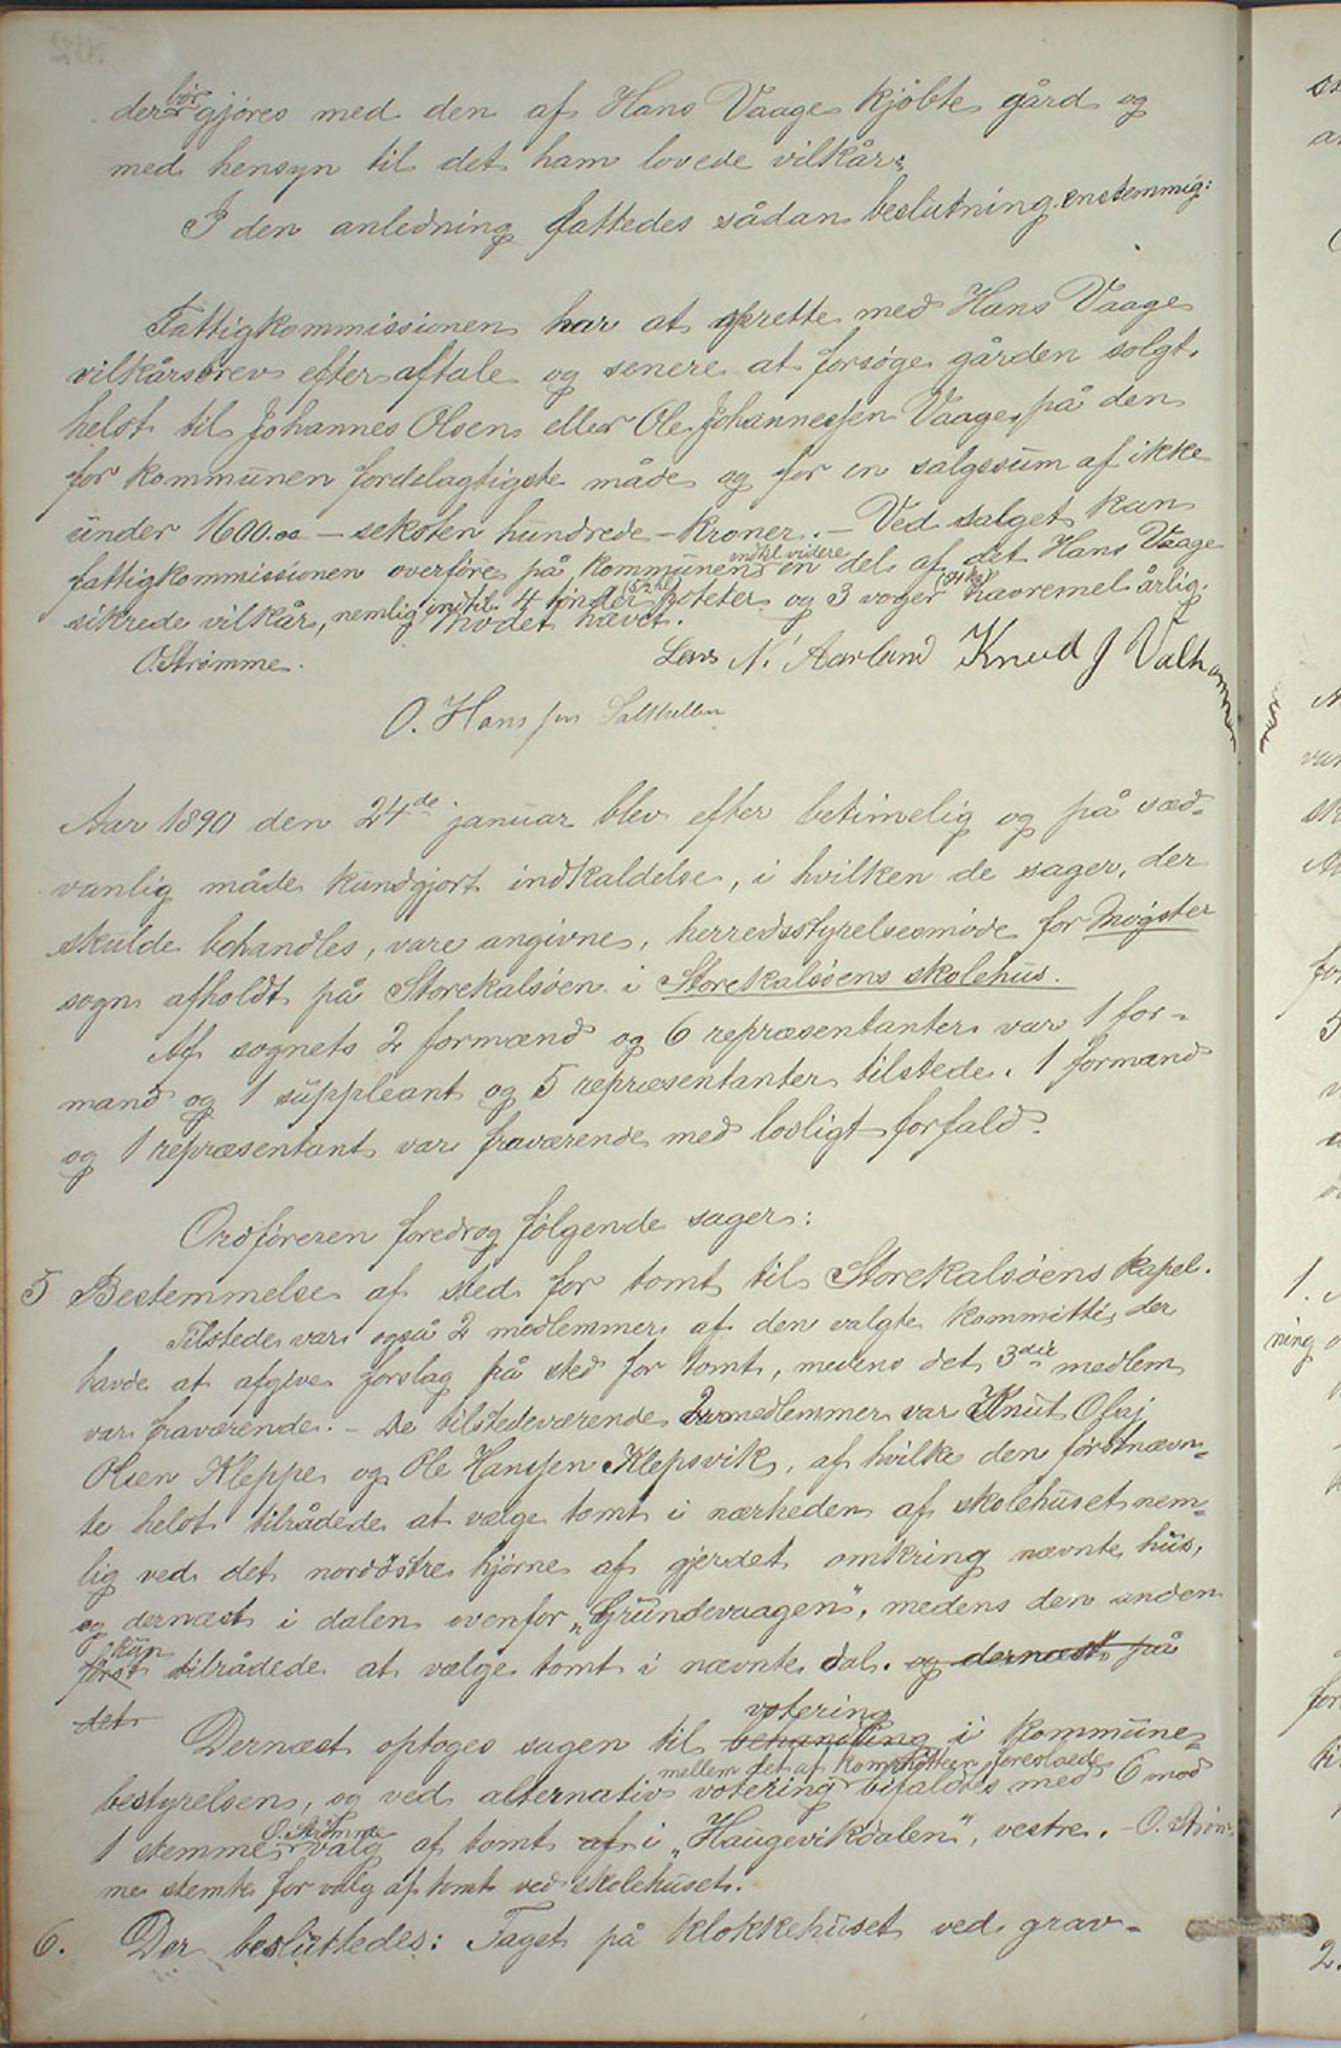 der bør gjøres med den af Hans Vaage kjøbte gård og
med hensyn til det ham lovede vilkår.
I den anledning fattedes sådan beslutning enstemmig:
Fattigkommissionen har at oprette med Hans Vaage
vilkårsbrev efter aftale og senere at forsøge gården solgt,
helst til Johannes Olsen eller Ole Johannessen Vaage, på den
for kommunen fordelagtigste måde og for en salgssum af ikke
under 1600.00 – seksten hundrede – kroner. – Ved salget kan
fattigkommissionen overføre på kommunen indtil videre en del af det Hans Vaage
sikrede vilkår, nemlig indtil 4 tønder poteter og 3 voger havremel årlig.
Mødet hævet.
O. Strømme. Lars N. Aarland Knud J Valhammer
O. Hanssen
Aar 1890 den 24de januar blev efter betimelig og på sæd-
vanlig måde kundgjort indkaldelse, i hvilken de sager, der
skulde behandles, vare angivne, herredsstyrelsesmøde for Møgster
sogn afholdt på Storekalsøen i Storekalsøens skolehus.
Af sognets 2 formænd og 6 repræsentanter var 1 for-
mand og 1 suppleant og 5 repræsentanter tilstede. 1 formand
og 1 repræsentant var fraværende med lovligt forfald.
Ordføreren foredrog følgende sager:
5 Bestemmelse af sted for tomt til Storekalsøens kapel.
Tilstede var også 2 medlemmer af den valgte kommitté, der
havde at afgive forslag på sted for tomt, medens det 3die medlem
var fraværende. – De tilstedeværende 2 medlemmer var Knut Olai
Olsen Kleppe og Ole Hanssen Klepsvik, af hvilke den førstnævn-
te helst tilrådede at vælge tomt i nærheden af skolehuset nem-
lig ved det nordøstre hjørne af gjerdet omkring nævnte hus,
og dernæst i dalen ovenfor „Grundevaagen“, medens den anden
først kun tilrådede at vælge tomt i nævnte dal. og dernæst på
det
Dernæst optoges sagen til behandling votering i kommune-
bestyrelsen, og ved alternativ votering mellem det af kommitteen foreslaaede bifaldtes med 6 mod
1 stemme O. Strømme valg af tomt af i „Haugevikdalen“, vestre. – O. Strøm-
me stemte for valg af tomt ved skolehuset.
6. Der besluttedes: Taget på klokkehuset ved grav-